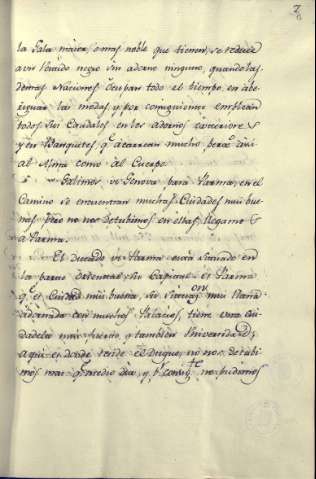 7
la Gala mejor, ò mas noble que tienen, se reduce
a un vestido negro sin adorno ninguno, quando las
demas Naciones ocupan todo el tiempo en abe-
riguar las modas y por consiguiente emplean
todos sus Caudales en los adornos exteriores
y en Banquetes q.e acarrean mucho asi
al Alma como al Cuerpo.
Salimos de Genova para Parma, en el
Camino se encuentran muchas Ciudades mui bue-
nas pero no nos detubimos en ellas, llegamos
a Parma.
El ducado de Parma està situado en
la Capital es Parma
q.e es Ciudad mui buena, su situacion mui llana
adornada con muchos Palacios, tiene una Ciu-
dadela mui fuerte, y tambien Universidad;
aqui es donde reside el Duque, no nos detubi-
mos mas q.e medio dia, y p.r consig.te no pudimos